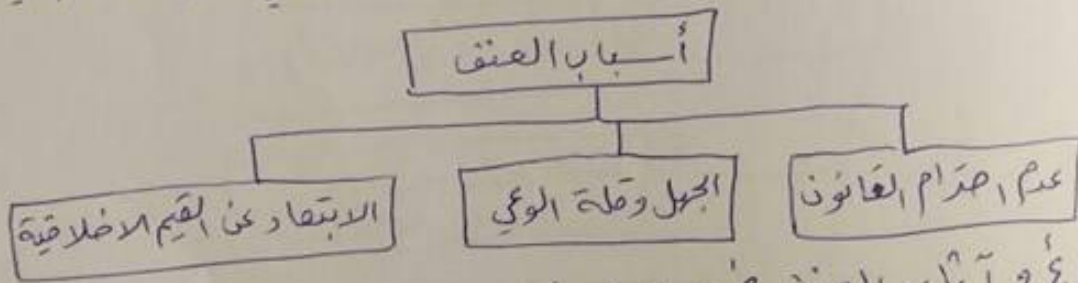 أسباب العنف
عدم احترام القانون
الجهل وقلة الوعي
الابتعاد عن القيم الاخلاقية